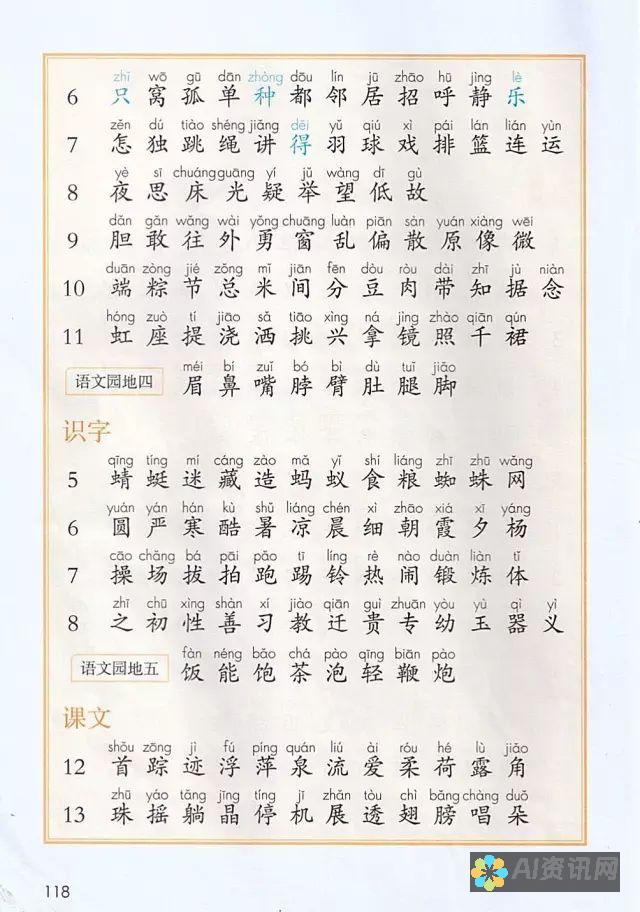 zhī wō gū dān zhòng dōu lín jū zhāo hū jìng lè
6 只 窝 孤 单 种 都 邻 居 招 呼 静 乐
zěn dú tiào shéng jiǎng děi yǔ qiú xì pái lán lián yùn
7 怎 独 跳 绳 讲 得 羽 球 戏 排 篮 连 运
yè sī chuáng guāng yí jǔ wàng dī gù
8 夜 思 床 光 疑 举 望 低 故
dǎn gǎn wǎng wài yǒng chuāng luàn piān sàn yuán xiàng wēi
9 胆 敢 往 外 勇 窗 乱 偏 散 原 像 微
duān zòng jié zǒng mǐ jiān fēn dòu ròu dài zhī jù niàn
10 端 粽 节 总 米 间 分 豆 肉 带 知 据 念
hóng zuò tí jiāo sǎ tiāo xìng ná jìng zhào qiān qún
11 虹 座 提 浇 洒 挑 兴 拿 镜 照 千 裙
méi bí zuǐ bó bì dù tuǐ jiǎo
语文园地四 眉 鼻 嘴 脖 臂 肚 腿 脚
识字
qīng tíng mí cáng zào mǎ yǐ shí liáng zhī zhū wǎng
5 蜻 蜓 迷 藏 造 蚂 蚁 食 粮 蜘 蛛 网
yuán yán hán kù shǔ liáng chén xì zhāo xiá xī yáng
6 圆 严 寒 酷 暑 凉 晨 细 朝 霞 夕 杨
cāo chǎng bá pāi pǎo tī líng rè nào duàn liàn tǐ
7 操 场 拔 拍 跑 踢 铃 热 闹 锻 炼 体
zhī chū xìng shàn xí jiào qiān guì zhuān yòu yù qì yì
8 之 初 性 善 习 教 迁 贵 专 幼 玉 器 义
fàn néng bǎo chá pào qīng biān pào
语文园地五 饭 能 饱 茶 泡 轻 鞭 炮
课文
shǒu zōng jì fú píng quán liú ài róu hé lù jiǎo
12 首 踪 迹 浮 萍 泉 流 爱 柔 荷 露 角
zhū yáo tǎng jīng tíng jī zhǎn tòu chì bǎng chàng duǒ
13 珠 摇 躺 晶 停 机 展 透 翅 膀 唱 朵
118
AI资讯网